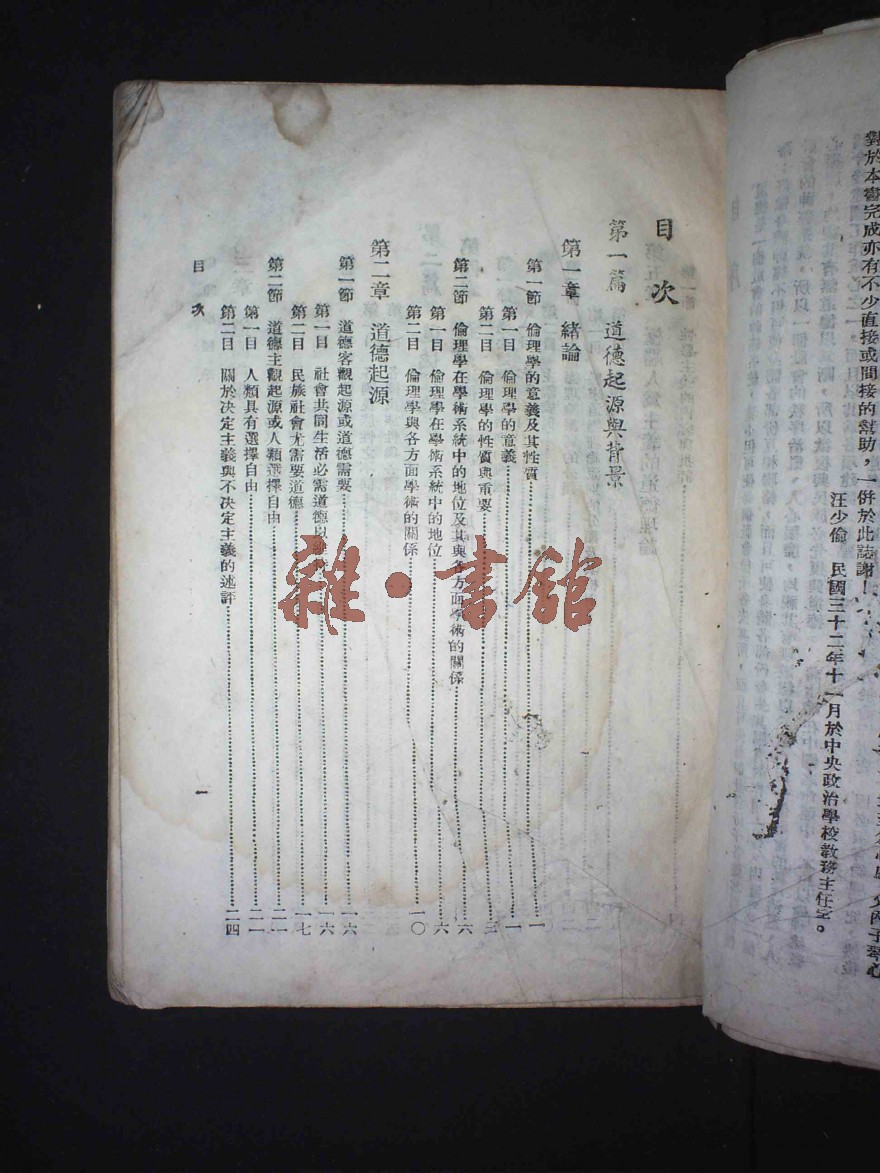 對於本書完成亦有不少直接或間接的幫助，一併於此誌謝！
汪少倫　民國三十二年十一月於中央政治學校教務主任室。
目次
第一篇　道德起源與背景
第一章　緒論
第一節　倫理學的意義及其性質……一
第一目　倫理學的意義……一
第二目　倫理學的性質與重要……三
第二節　倫理學在學術系統中的地位及其與各方面學術的關係……六
第一目　倫理學在學術系統中的地位……六
第二目　倫理學與各方面學術的關係……一〇
第二章　道德起源
第一節　道德客觀起源或道德需要……一六
第一目　社會共同生活必需道德以維……一六
第二目　民族社會尤需要道德……一七
第二節　道德主觀起源或人類選擇自由……二一
第一目　人類具有選擇自由……二一
第二目　關於決定主義與不決定主義的述評……二四
目次
一
雜·書館